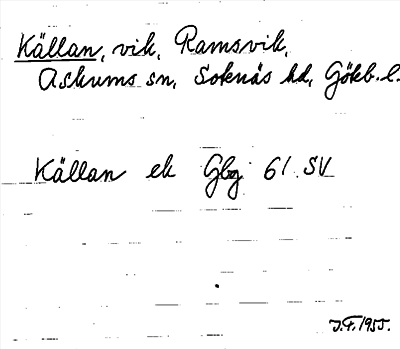 Källan, vik, Ramsvik,
Askums sn, Soknäs hd, Göteb. l.
Källan ek Gbg 61 SV
J.F. 1955.